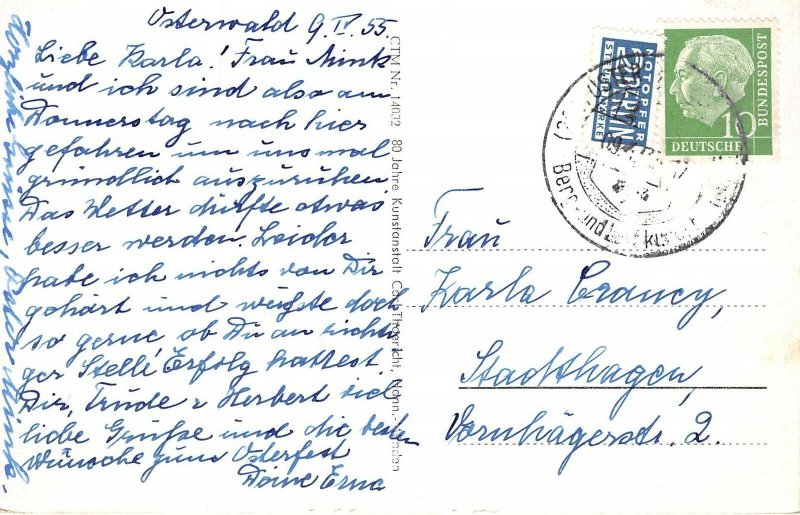 Osterwald 9.IV.55
Liebe Karla! Frau Nink
und ich sind also am
Donnerstag nach hier
gefahren um uns mal
gründlich auszuruhen
Das Wetter dürfte etwas
besser werden. Leider
habe ich nichts von Dir
gehört und wüßte doch
so gerne ob Du an richti-
ger Stelle Erfolg hattest.
Dir, Trude u Herbert viel
liebe Grüße und die besten
Wünsche zum Osterfest
Deine Erna
Herzliche
CTM Nr. 14032 80 Jahre Kunstanstalt Carl Thoericht, Hann.-Münden
NOTOPFER
2 BERLIN
STEUERMARKE
10
DEUTSCHE
BUNDESPOST
Berg- und
Frau
Karla Crancy,
Stadthagen,
Vornhägerstr. 2.